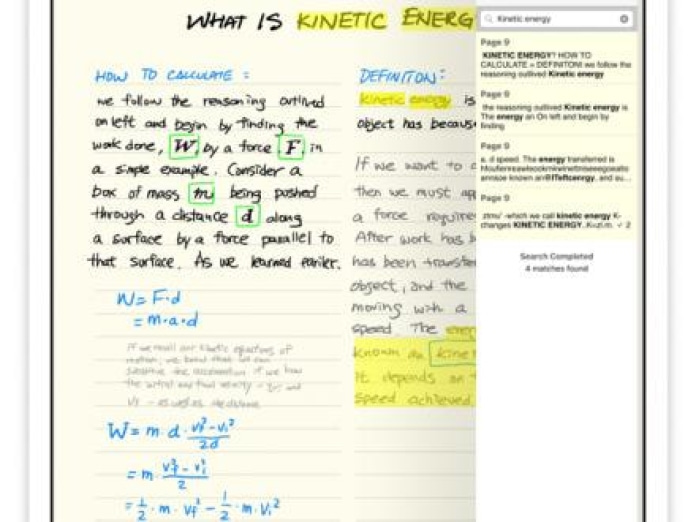 WHAT IS KINETIC ENERG
HOW TO CALCULATE :
we follow the reasoning outlined
on left and begin by finding the
work done, W, by a force F, in
a simple example. Consider a
box of mass m being pushed
through a distance d along
a surface by a force parallel to
that surface. As we learned earlier.
W = F·d
= m·a·d
If we recall our kinetic equations of
motion, we
the
W = m·d·
= m·
= 1/2·m·Vf² - 1/2·m·Vi²
DEFINITION:
kinetic energy is
object has because
If we want to
then we must
a force require
After work has
has been transfer
object, and the
moving with a
speed. The energ
known as kine
it depends on
speed achieved.
Kinetic energy
Page 9
KINETIC ENERGY? HOW TO
CALCULATE = DEFINITONI we follow the
reasoning outlived Kinetic energy
Page 9
the reasoning outlived Kinetic energy is
The energy an On left and begin by
finding
Page 9
a. d speed. The energy transferred is
and su...
Page 9
-which we call kinetic energy K-
changes KINETIC ENERGY.
Search Completed
4 matches found